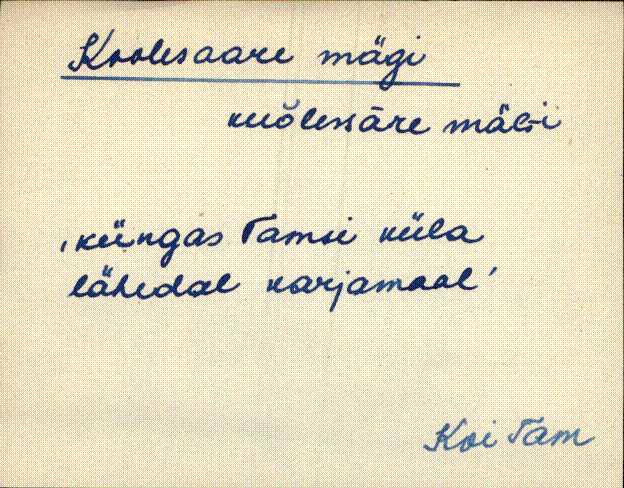 Koolesaare mägi
kuŏlessāre mäɢi
‚küngas Tamsi küla
lähedal karjamaal’
Koi Tam